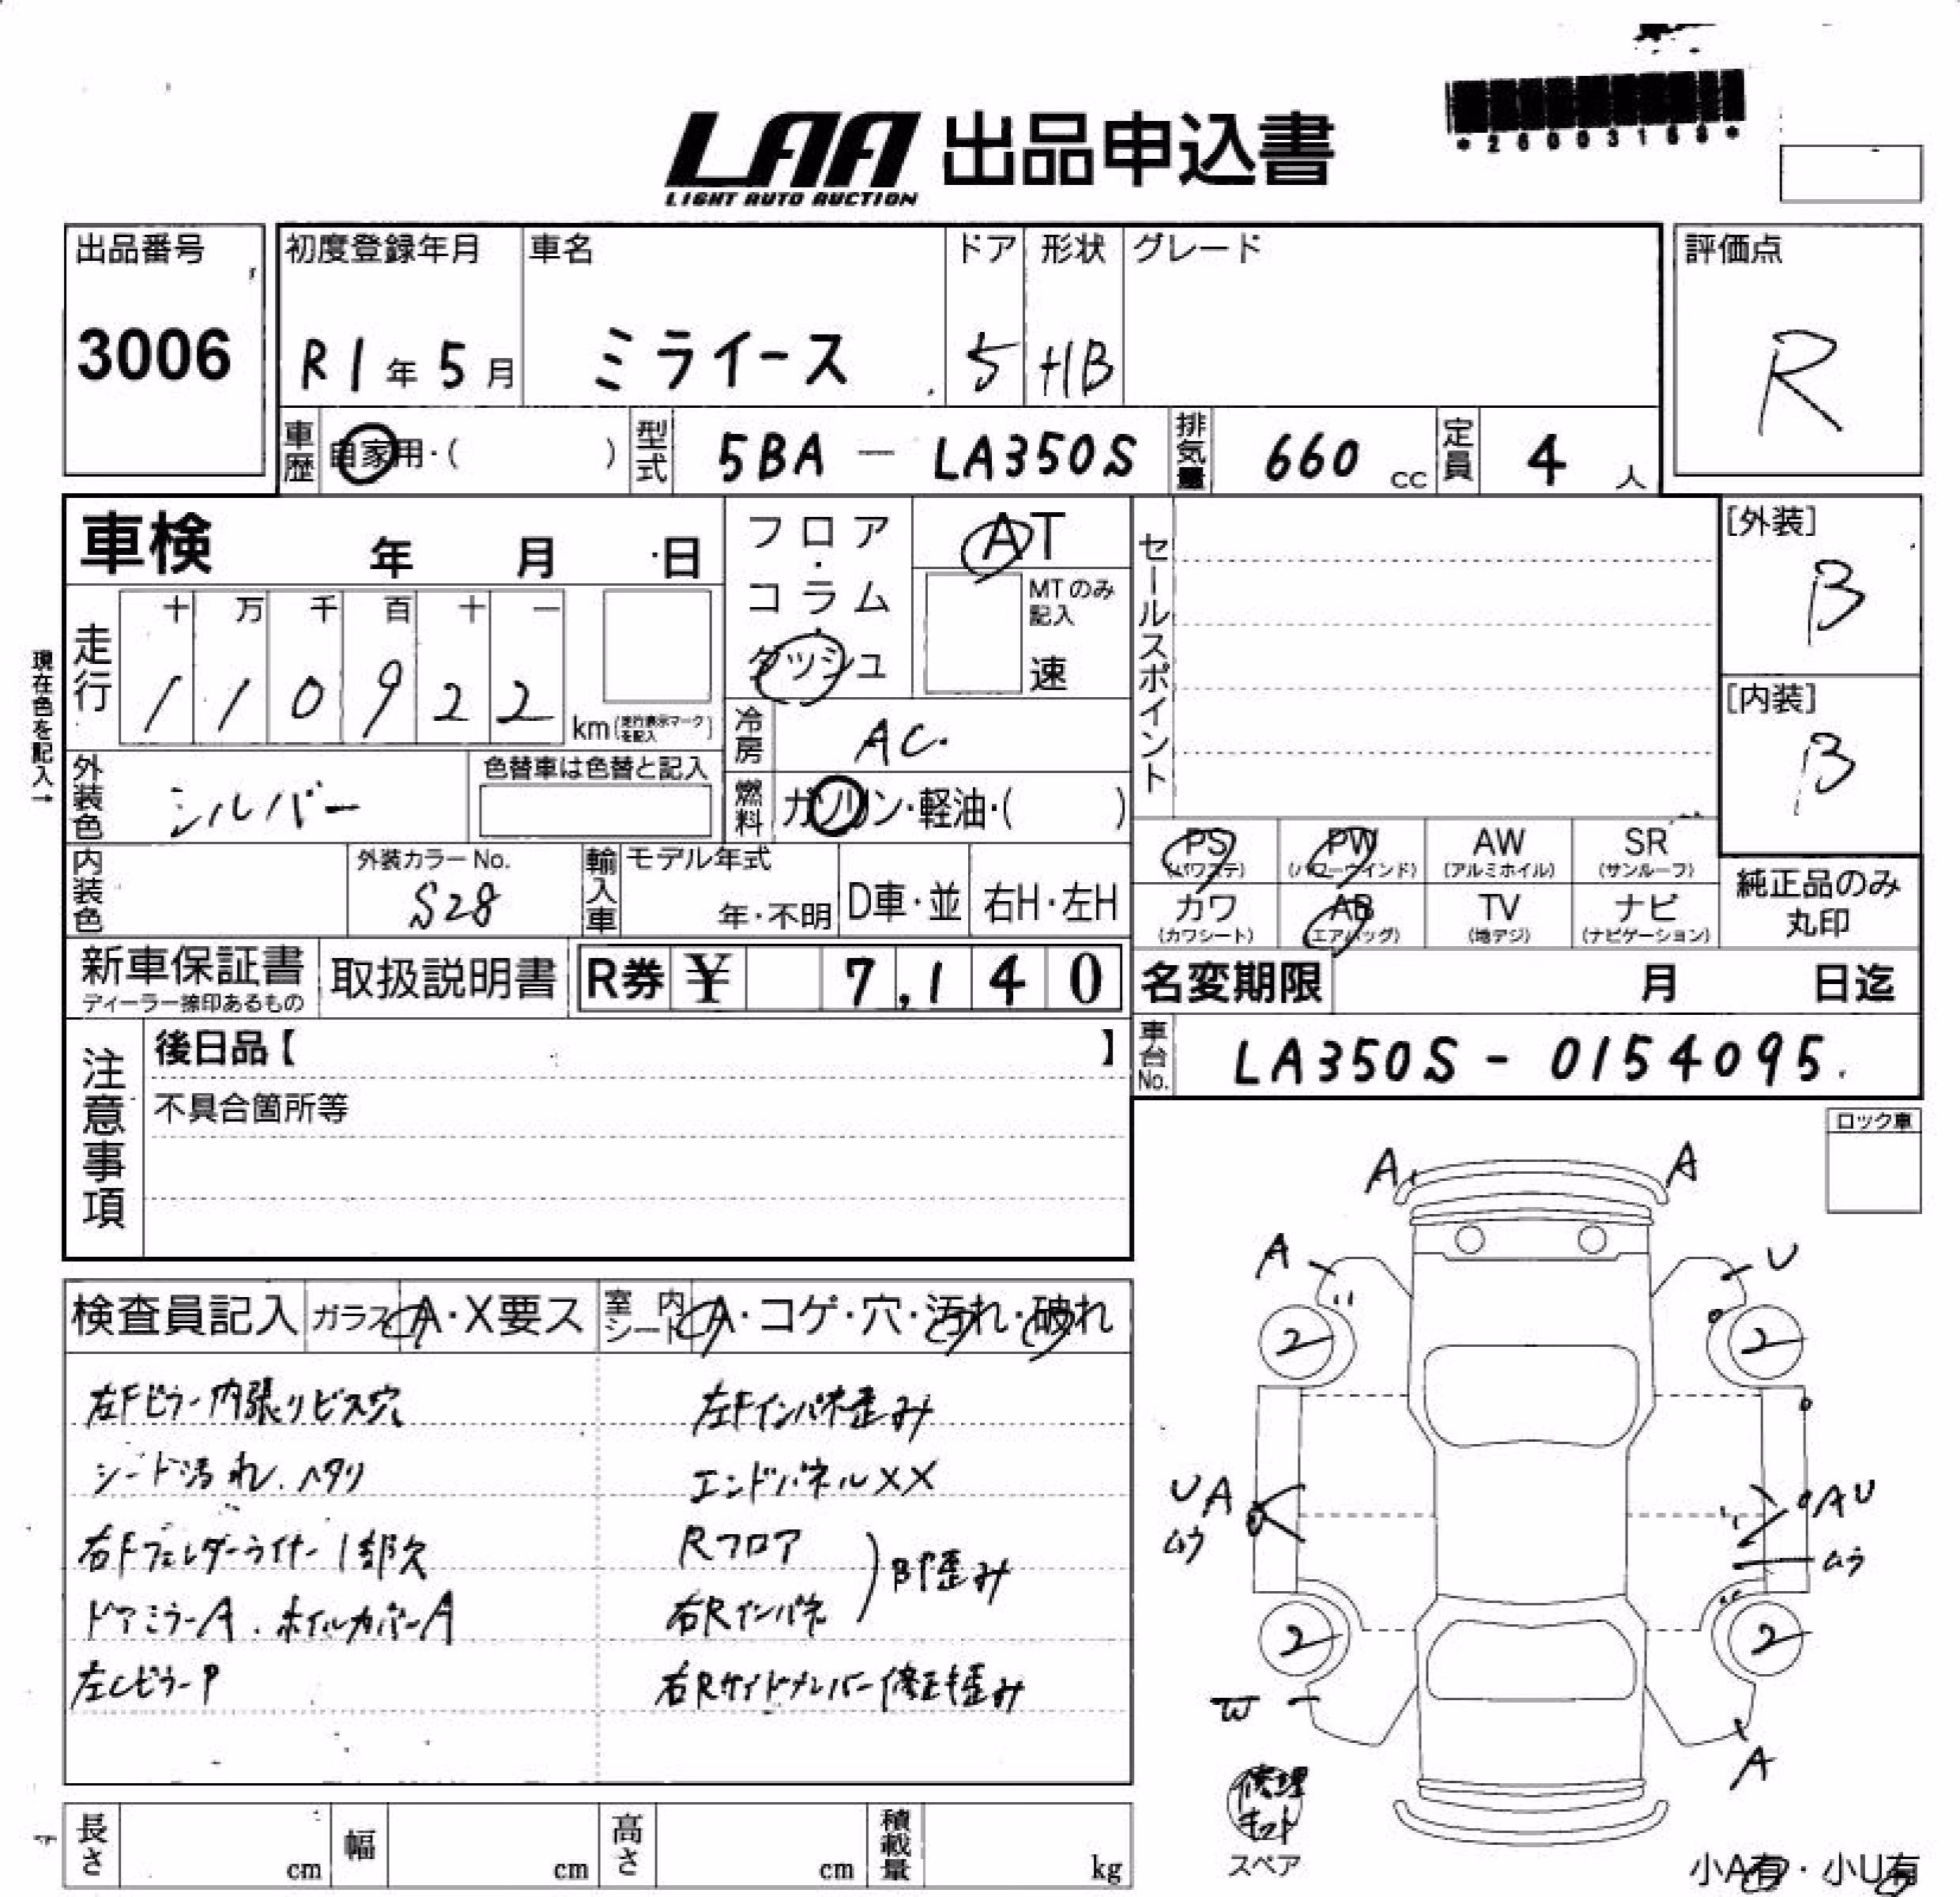 *26003169*
LAA 出品申込書
LIGHT AUTO AUCTION
出品番号
3006
初度登録年月
R1年5月
車名
ミライース
ドア
5
形状
HB
グレード
評価点
R
車歴
自家用・( )
型式
5BA - LA350S
排気量
660 cc
定員
4 人
車検 年 月 日
フロア・コラム・ダッシュ
AT
MTのみ記入
速
セールスポイント
[外装]
B
[内装]
B
現在色を記入→
走行
十 万 千 百 十 一
1 1 0 9 2 2
km(走行表示マークを記入)
冷房
AC.
外装色
シルバー
色替車は色替と記入
燃料
ガソリン・軽油・( )
PS (パワステ)
PW (パワーウインド)
AW (アルミホイル)
SR (サンルーフ)
カワ (カワシート)
AB (エアバッグ)
TV (地デジ)
ナビ (ナビゲーション)
純正品のみ丸印
内装色
外装カラーNo.
S28
輸入車
モデル年式
年・不明
D車・並
右H・左H
新車保証書
ディーラー捺印あるもの
取扱説明書
R券 ¥ 7,140
名変期限 月 日迄
車台No.
LA350S - 0154095.
注意事項
後日品【 】
不具合箇所等
ロック車
検査員記入
ガラス A・X要ス
室内シート A・コゲ・穴・汚れ・破れ
左Fピラー内張りビス穴
シート汚れ.ヘタリ
右Fフェンダーライナー1部欠
ドアミラーA.ホイルカバーA
左CピラーP
左Fインパネ歪み
エンドパネルXX
Rフロア
右Rインパネ
)B歪み
右Rサイドメンバー修正歪み
A A
A U
2 2
UA
ムラ
AU
ムラ
2 2
W
A
修理キット
スペア
小A有・小U有
長さ cm
幅 cm
高さ cm
積載量 kg